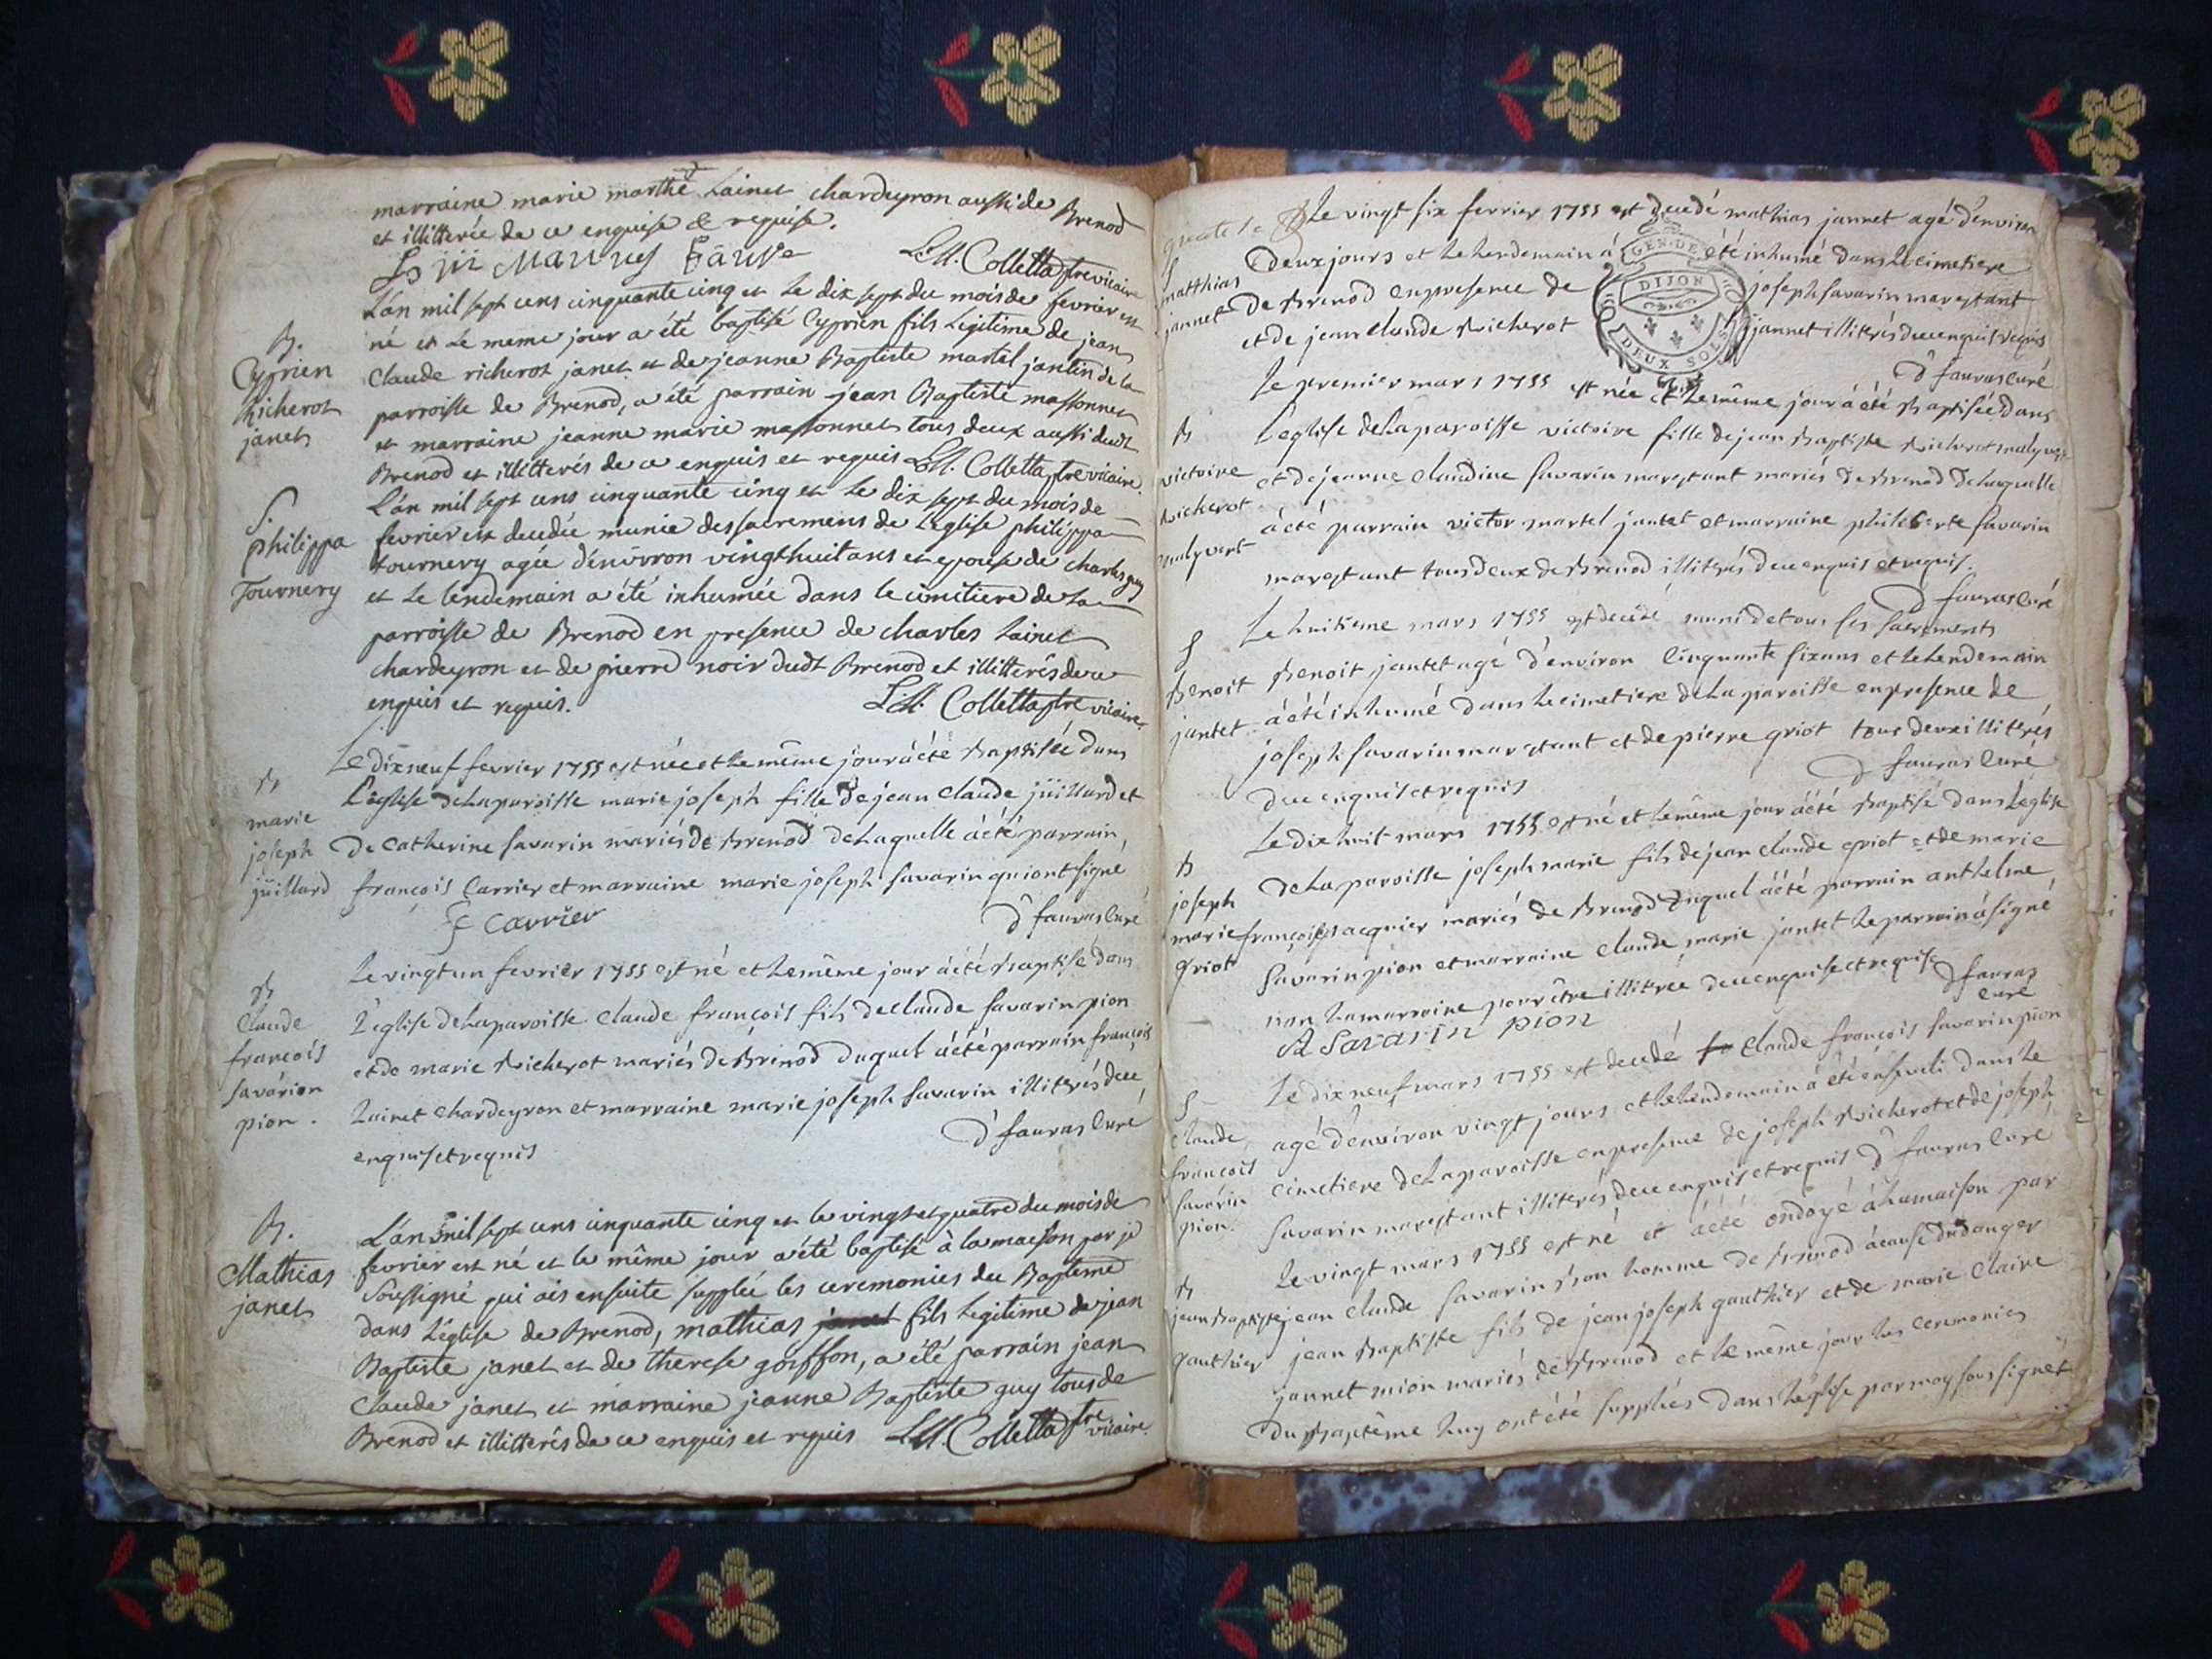 marraine marie marthe Lainet chardeyron aussi de Brenod
et illitterée de ce enquise & requise.
L.M. Colletta ptre vicaire
L'an mil sept cens cinquante cinq et le dix sept du mois de fevrier est
né et le meme jour a été baptisé Cyprien fils Legitime de jean
B.
Cyprien
Richerot
janet
Claude richerot janet et de jeanne Baptiste martel jantin de la
parroisse de Brenod, a été parrain jean Baptiste massonnet
et marraine jeanne marie massonnet tous deux aussi dudt
Brenod et illitterés de ce enquis et requis L.M. Colletta ptre vicaire.
L'an mil sept cens cinquante cinq et le dix sept du mois de
S.
philippa
Tournery
fevrier est decedée munie des sacremens de L'eglise philippa
tournery agée d'environ vingt huit ans et epouse de charles guy
et le lendemain a été inhumée dans le cimitiere de la
parroisse de Brenod en presence de charles Lainet
chardeyron et de pierre noir dudt Brenod et illitterés de ce
enquis et requis. L.M. Colletta ptre vicaire.
Le dixneuf fevrier 1755 est née et le même jour à été Baptisée dans
B
marie
joseph
juillard
L'eglise de la paroisse marie joseph fille de jean claude juillard et
de Catherine savarin mariés de Brenod de laquelle à été parrain
françois Carrier et marraine marie joseph savarin qui ont signé
f carrier D fauras Curé
Le vingt un fevrier 1755 est né et le même jour à été Baptisé dans
B
Claude
françois
savarion
pion.
L'eglise de la paroisse Claude françois fils de Claude savarin pion
et de marie Richerot mariés de Brenod duquel à été parrain françois
Lainet chardeyron et marraine marie joseph savarin illitérés de ce
enquis et requis D fauras Curé
B.
Mathias
janet
L'an mil sept cens cinquante cinq et le vingt et quatre du mois de
fevrier est né et le même jour a été baptisé à la maison par je
soussigné qui ais ensuite supplée les ceremonies du Baptême
dans L'église de Brenod, mathias fils Legitime de jean
Baptiste janet et de therese goiffon, a été parrain jean
Claude janet et marraine jeanne Baptiste guy tous de
Brenod et illitterés de ce enquis et requis L.M. Colletta ptre vicaire.
Le vingt six fevrier 1755 est decedé mathias jannet agé d'environ
S
matthias
jannet
deux jours et le lendemain à été inhumé dans le cimetiere
de Brenod en presence de joseph savarin marestant
et de jean claude Richerot jannet illitérés de ce enquis et requis
GEN. DE
DIJON
DEUX SOLS
D fauras curé
Le premier mars 1755 est née et le même jour à été Baptisée dans
B
victoire
Richerot
malyvert
L'eglise de la paroisse victoire fille de jean Baptiste Richerot malyvert
et de jeanne claudine savarin marestant mariés de Brenod de laquelle
à été parrain victor martel jantet et marraine philiberte savarin
marestant tous deux de Brenod illitérés de ce enquis et requis.
D fauras curé
Le huitieme mars 1755 est decedé muni de tous ses sacrements
S
Benoit
jantet
Benoit jantet agé d'environ cinquante six ans et le lendemain
à été inhumé dans le cimetiere de la paroisse en presence de
joseph savarin marestant et de pierre griot tous deux illitérés
de ce enquis et requis D fauras Curé
Le dix huit mars 1755 est né et le même jour à été Baptisé dans L'eglise
B
joseph
marie
griot
de la paroisse joseph marie fils de jean claude griot et de marie
françoise jacquier mariés de Brenod duquel à été parrain anthelme
savarin pion et marraine claude marie jantet le parrain à signé
non la marraine pour être illitérée de ce enquise et requise D fauras
curé
A Savarin pion
Le dix neuf mars 1755 est decedé Claude françois savarin pion
S
claude
françois
savarin
pion.
agé d'environ vingt jours et le lendemain à été enseveli dans le
cimetiere de la paroisse en presence de joseph Richerot et de joseph
savarin marestant illitérés de ce enquis et requis D fauras Curé
Le vingt mars 1755 est né et à été ondoyé à la maison par
B
jean Baptiste
gauthier
jean claude savarin homme de Brenod à cause du danger
jean Baptiste fils de jean joseph gauthier et de marie claire
jannet mion mariés de Brenod et le même jour les ceremonies
du Baptême luy ont été supplées dans L'eglise par moy soussigné